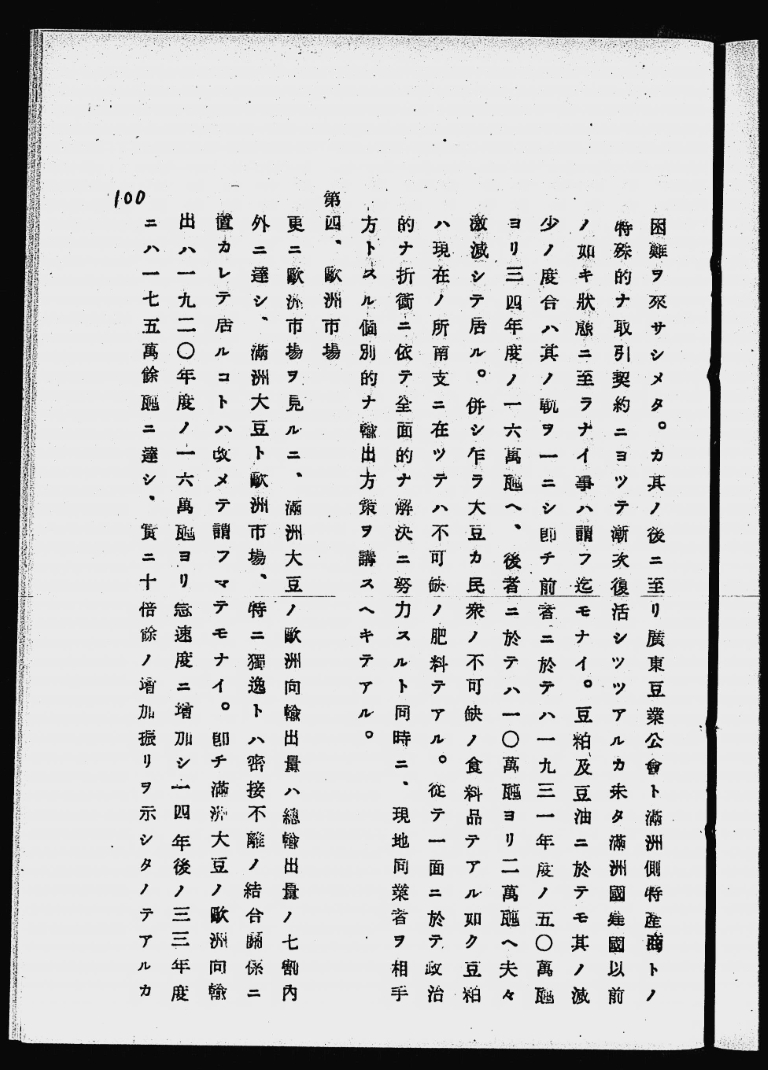 困難ヲ來サシメタ。カ其ノ後ニ至リ廣東豆業公會ト滿洲側特産商トノ
特殊的ナ取引契約ニヨツテ漸次復活シツツアルカ未タ滿洲國建國以前
ノ如キ狀態ニ至ラナイ事ハ謂フ迄モナイ。豆粕及豆油ニ於テモ其ノ減
少ノ度合ハ其ノ軌ヲ一ニシ卽チ前者ニ於テハ一九三一年度ノ五〇萬瓲
ヨリ三四年度ノ一六萬瓲ヘ、後者ニ於テハ一〇萬瓲ヨリ二萬瓲ヘ夫々
激減シテ居ル。併シ乍ラ大豆カ民衆ノ不可缺ノ食料品テアル如ク豆粕
ハ現在ノ所南支ニ在ツテハ不可缺ノ肥料テアル。從テ一面ニ於テ政治
的ナ折衝ニ依テ全面的ナ解決ニ努力スルト同時ニ、現地同業者ヲ相手
方トスル個別的ナ輸出方策ヲ講スヘキテアル。
第四、歐洲市場
更ニ歐洲市場ヲ見ルニ、滿洲大豆ノ歐洲向輸出量ハ總輸出量ノ七割內
外ニ達シ、滿洲大豆ト歐洲市場、特ニ獨逸トハ密接不離ノ結合關係ニ
置カレテ居ルコトハ改メテ謂フマテモナイ。卽チ滿洲大豆ノ歐洲向輸
出ハ一九二〇年度ノ一六萬瓲ヨリ急速度ニ增加シ一四年後ノ三三年度
ニハ一七五萬餘瓲ニ達シ、實ニ十倍餘ノ增加振リヲ示シタノテアルカ
100